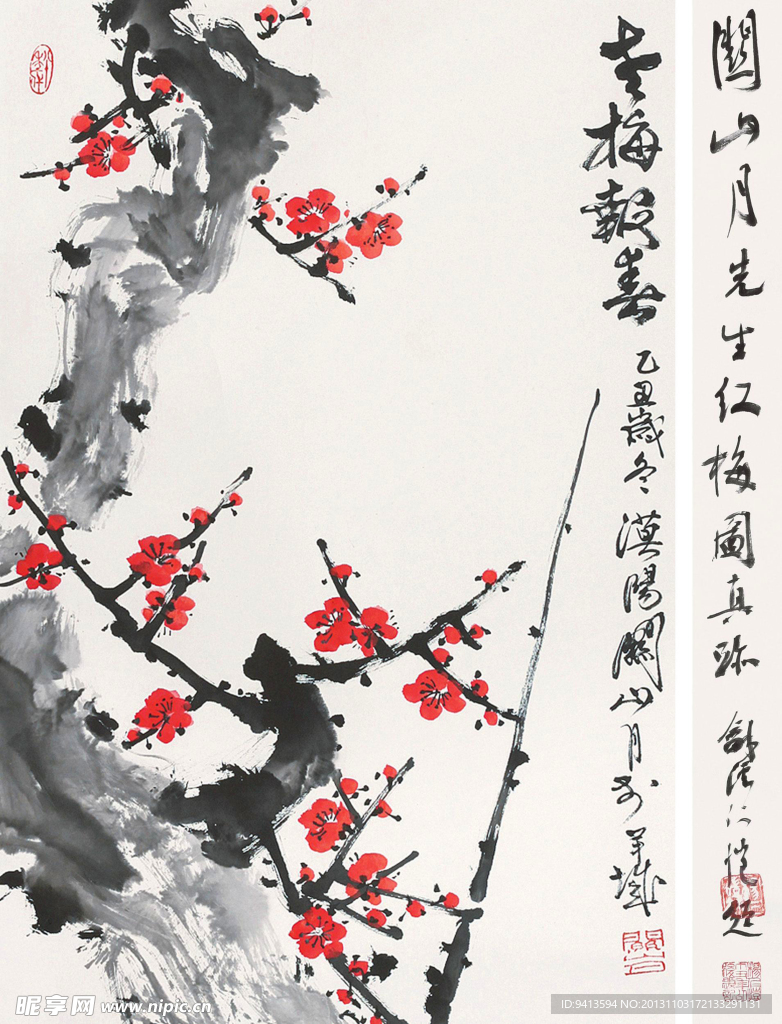 關山月先生红梅图真跡
老梅報春
乙丑歲冬漠陽關山月於羊城
昵享网 www.nipic.cn
ID:9413594 NO:20131103172133291131